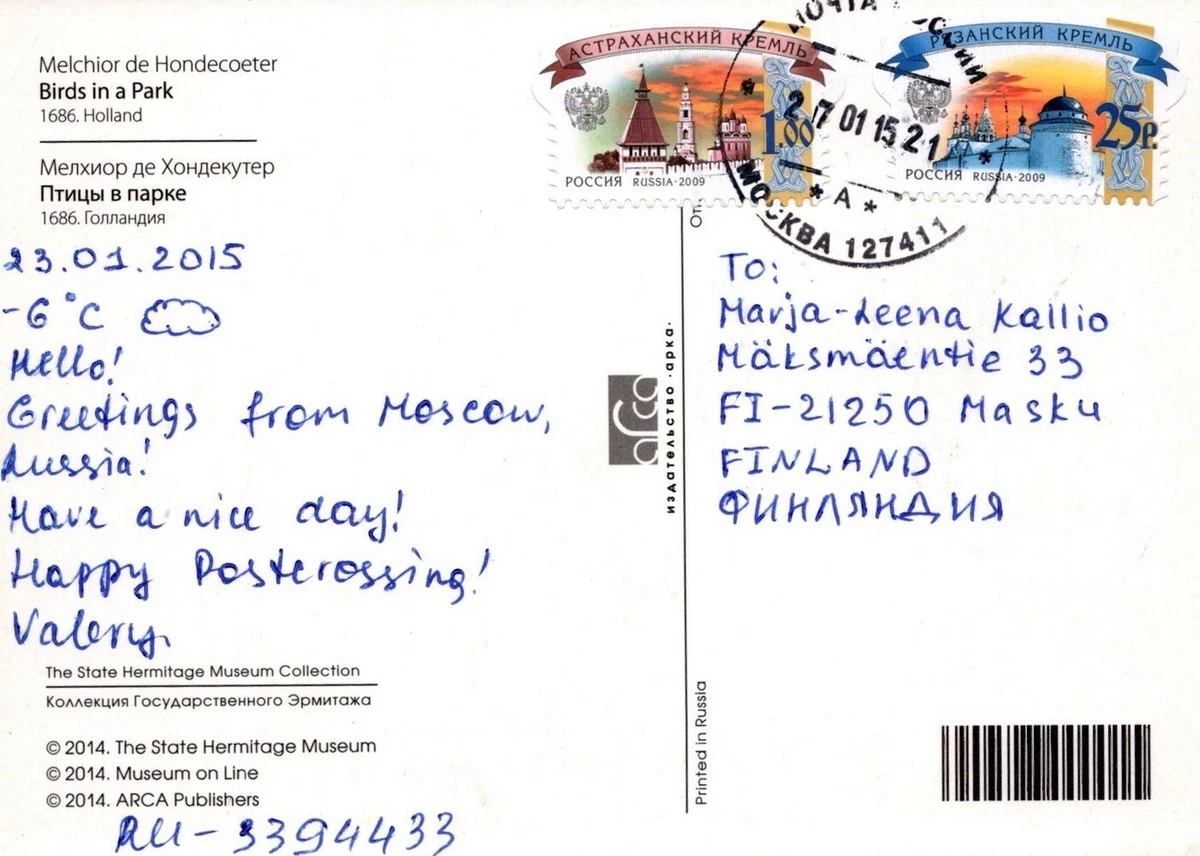 Melchior de Hondecoeter
Birds in a Park
1686. Holland
Мелхиор де Хондекутер
Птицы в парке
1686. Голландия
23.01.2015
-6°C
Hello!
Greetings from Moscow,
Russia!
Have a nice day!
Happy Postcrossing!
Valery.
The State Hermitage Museum Collection
Коллекция Государственного Эрмитажа
© 2014. The State Hermitage Museum
© 2014. Museum on Line
© 2014. ARCA Publishers
RU-3394433
АСТРАХАНСКИЙ КРЕМЛЬ
1.00
РОССИЯ RUSSIA·2009
РЯЗАНСКИЙ КРЕМЛЬ
25р.
РОССИЯ RUSSIA·2009
ПОЧТА РОССИИ
27 01 15 21
* А *
МОСКВА 127411
От
arca
издательство ·арка·
Printed in Russia
To:
Marja-Leena Kallio
Mäksmäentie 33
FI-21250 Masku
FINLAND
ФИНЛЯНДИЯ